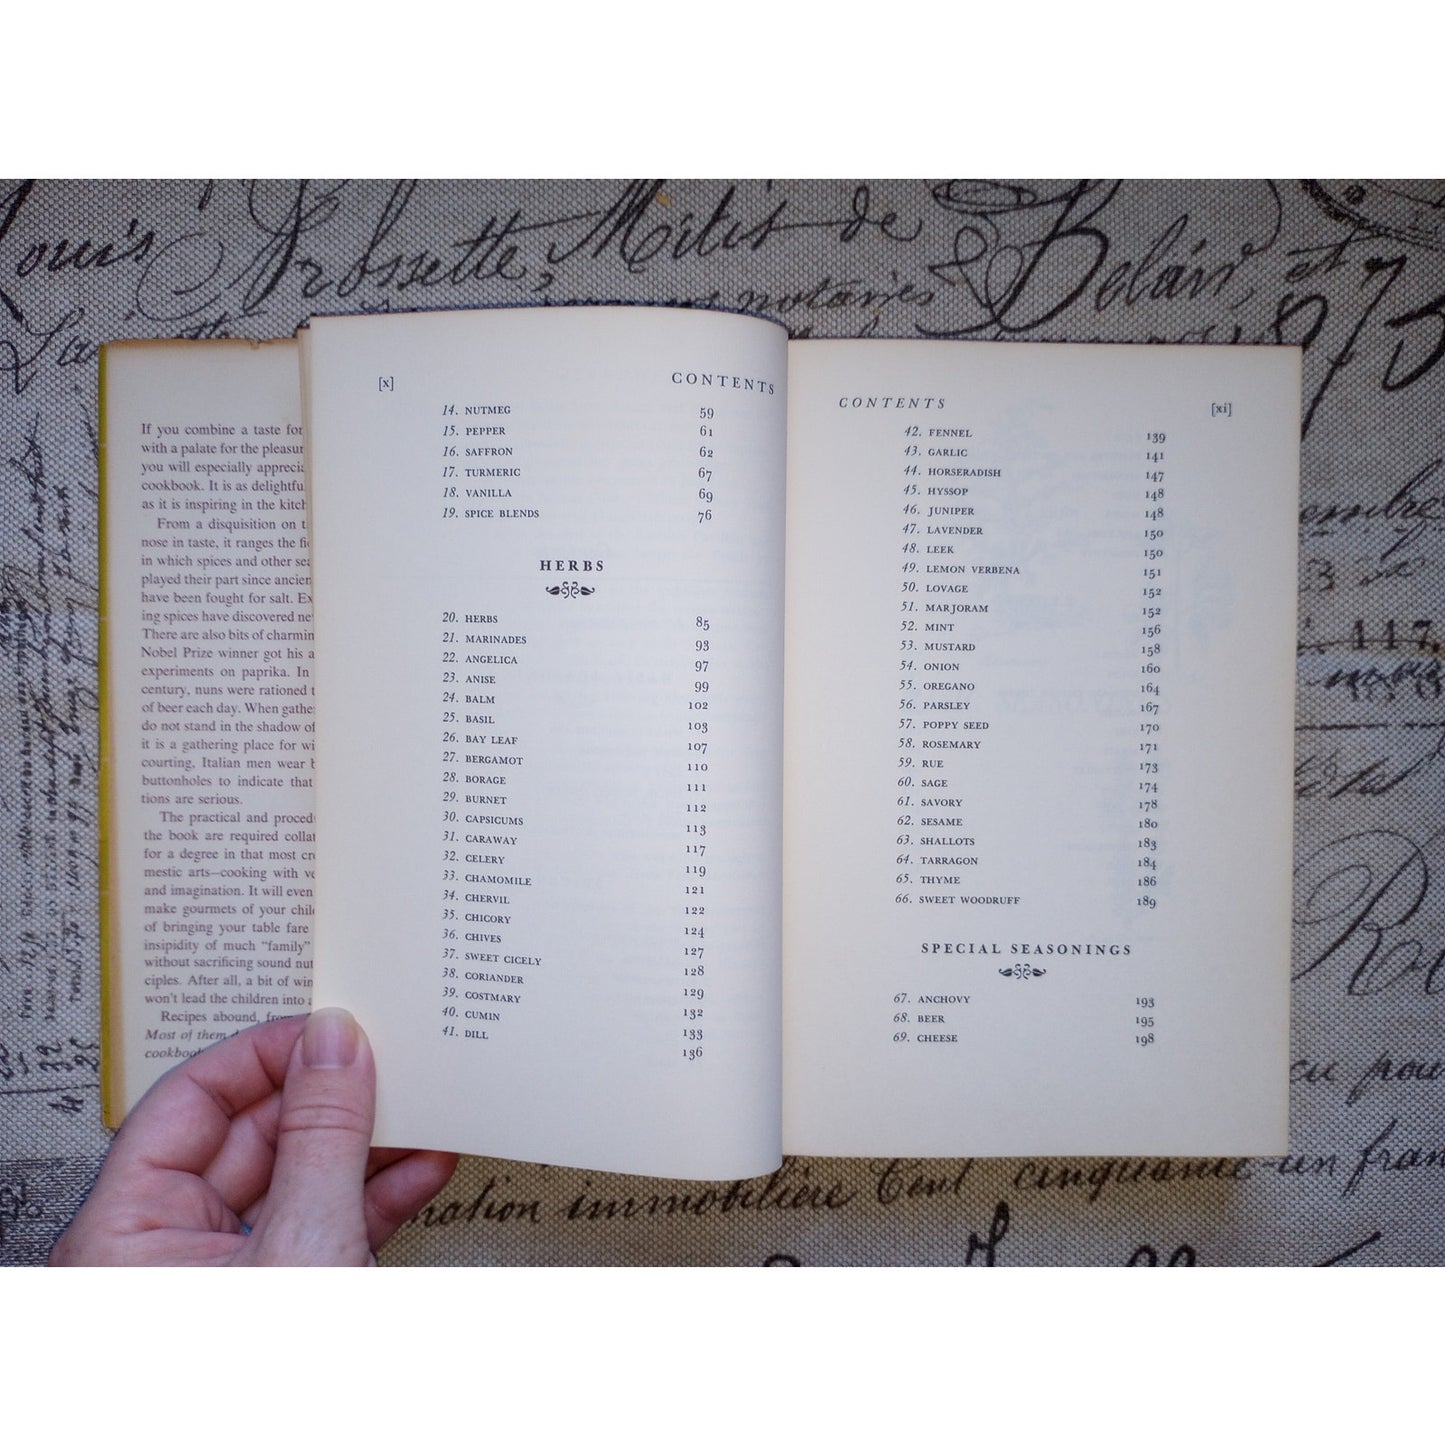 Mitis de
notaires
If you combine a taste for
with a palate for the
you will especially
cookbook. It is as
as it is inspiring in the
From a disquisition on
nose in taste, it ranges the
in which spices and other
played their part since
have been fought for salt.
ing spices have discovered
There are also bits of
Nobel Prize winner got his
experiments on paprika. In
century, nuns were rationed
of beer each day. When
do not stand in the shadow of
it is a gathering place for
courting, Italian men wear
buttonholes to indicate that
tions are serious.
The practical and
the book are required
for a degree in that most
mestic arts—cooking with
and imagination. It will even
make gourmets of your
of bringing your table fare
insipidity of much "family"
without sacrificing sound
ciples. After all, a bit of
won't lead the children into
Recipes abound,
Most of them
[x] CONTENTS
14. NUTMEG 59
15. PEPPER 61
16. SAFFRON 62
17. TURMERIC 67
18. VANILLA 69
19. SPICE BLENDS 76
HERBS
20. HERBS 85
21. MARINADES 93
22. ANGELICA 97
23. ANISE 99
24. BALM 102
25. BASIL 103
26. BAY LEAF 107
27. BERGAMOT 110
28. BORAGE 111
29. BURNET 112
30. CAPSICUMS 113
31. CARAWAY 117
32. CELERY 119
33. CHAMOMILE 121
34. CHERVIL 122
35. CHICORY 124
36. CHIVES 127
37. SWEET CICELY 128
38. CORIANDER 129
39. COSTMARY 132
40. CUMIN 133
41. DILL 136
CONTENTS [xi]
42. FENNEL 139
43. GARLIC 141
44. HORSERADISH 147
45. HYSSOP 148
46. JUNIPER 148
47. LAVENDER 150
48. LEEK 150
49. LEMON VERBENA 151
50. LOVAGE 152
51. MARJORAM 152
52. MINT 156
53. MUSTARD 158
54. ONION 160
55. OREGANO 164
56. PARSLEY 167
57. POPPY SEED 170
58. ROSEMARY 171
59. RUE 173
60. SAGE 174
61. SAVORY 178
62. SESAME 180
63. SHALLOTS 183
64. TARRAGON 184
65. THYME 186
66. SWEET WOODRUFF 189
SPECIAL SEASONINGS
67. ANCHOVY 193
68. BEER 195
69. CHEESE 198
117
immobilière Cent cinquante-un